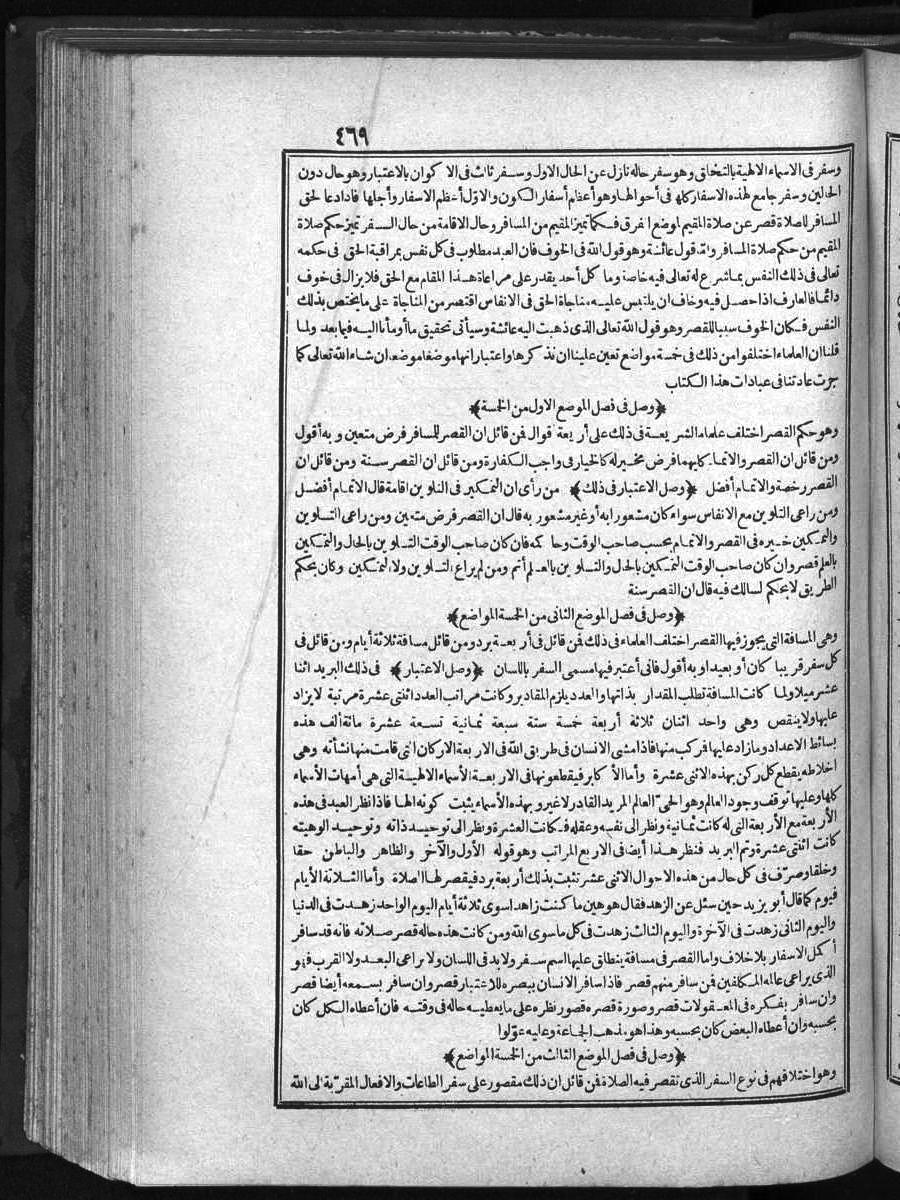 ٤٦٩
وسفر فى الاسماء الالهية بالتخلق وهو سفر حاله نازل عن الحال الاول وسفر ثالث فى الاكوان بالاعتبار وهو حال دون
الحالين وسفر جامع لهذه الاسفار كلها فى أحوالها وهو أعظم أسفار الكون والاوّل أعظم الاسفار وأجلها فاذا دعا الحق
المسافر للصلاة قصر عن صلاة المقيم لوضع الفرق فكما تميز المقيم من المسافر وحال الاقامة من حال السفر تميز حكم صلاة
المقيم من حكم صلاة المسافر وانه قول عائشة وهو قول الله فى الخوف فان العبد مطلوب فى كل نفس بمراقبة الحق فى حكمه
تعالى فى ذلك النفس بما شرع له تعالى فيه خاصة وما كل أحد يقدر على مراعاة هذا المقام مع الحق فلا يزال فى خوف
دائما فالعارف اذا حصل فيه وخاف ان يلتبس عليه مناجاة الحق فى الانفاس اقتصر من المناجاة على ما يختص بذلك
النفس فكان الخوف سببا للقصر وهو قول الله تعالى الذى ذهبت اليه عائشة وسيأتى تحقيق ما أومأنا اليه فيما بعد ولما
قلنا ان العلماء اختلفوا من ذلك فى خمسة مواضع تعين علينا ان نذكرها واعتباراتها موضعا موضعا ان شاء الله تعالى كما
جرت عادتنا فى عبادات هذا الكتاب
﴿وصل فى فصل الموضع الاول من الخمسة﴾
وهو حكم القصر اختلف علماء الشريعة فى ذلك على أربعة أقوال فمن قائل ان القصر للمسافر فرض متعين وبه أقول
ومن قائل ان القصر والاتمام كليهما فرض مخير له كالخيار فى واجب الكفارة ومن قائل ان القصر سنة ومن قائل ان
القصر رخصة والاتمام أفضل ﴿وصل الاعتبار فى ذلك﴾ من رأى ان التمكين فى التلوين اقامة قال الاتمام أفضل
ومن راعى التلوين مع الانفاس سواء كان مشعورا به أو غير مشعور به قال ان القصر فرض متعين ومن راعى التلوين
والتمكين خيره فى القصر والاتمام بحسب صاحب الوقت وحاكمه فان كان صاحب الوقت التلوين بالحال والتمكين
بالعلم قصر وان كان صاحب الوقت التمكين بالحال والتلوين بالعلم أتم ومن لم يراع التلوين ولا التمكين وكان بحكم
الطريق لا بحكم لسالك فيه قال ان القصر سنة
﴿وصل فى فصل الموضع الثانى من الخمسة المواضع﴾
وهى المسافة التى يجوز فيها القصر اختلف العلماء فى ذلك فمن قائل فى أربعة برد ومن قائل مسافة ثلاثة أيام ومن قائل فى
كل سفر قريبا كان أو بعيدا وبه أقول فانى أعتبر فيها مسمى السفر باللسان ﴿وصل الاعتبار﴾ فى ذلك البريد اثنا
عشر ميلا ولما كانت المسافة تطلب المقدار بذاتها والعدد يلزم المقادير وكانت مراتب العدد اثنتى عشرة مرتبة لا يزاد
عليها ولا ينقص وهى واحد اثنان ثلاثة أربعة خمسة ستة سبعة ثمانية تسعة عشرة مائة ألف هذه
بسائط الاعداد وما زاد عليها فركب منها فاذا مشى الانسان فى طريق الله فى الاربعة الاركان التى قامت منها نشأته وهى
اخلاطه يقطع كل ركن بهذه الاثنى عشرة وأما الأكابر فيقطعونها فى الاربعة الأسماء الالهية التى هى أمهات الأسماء
كلها وعليها توقف وجود العالم وهو الحىّ العالم المريد القادر لا غير وبهذه الأسماء يثبت كونه الها فاذا نظر العبد فى هذه
الأربعة مع الأربعة التى له كانت ثمانية ونظر الى نفسه وعقله فكانت العشرة ونظر الى توحيد ذاته وتوحيد الوهيته
كانت اثنتى عشرة وتم البريد فنظر هذا أيضا فى الاربع المراتب وهو قوله الأول والآخر والظاهر والباطن حقا
وخلقا وصرّف فى كل حال من هذه الاحوال الاثنى عشر تثبت بذلك أربعة برد فيقصر لها الصلاة وأما الثلاثة الأيام
فيوم كما قال أبو يزيد حين سئل عن الزهد فقال هو هين ما كنت زاهدا سوى ثلاثة أيام اليوم الواحد زهدت فى الدنيا
واليوم الثانى زهدت فى الآخرة واليوم الثالث زهدت فى كل ما سوى الله ومن كانت هذه حاله قصر صلاته فانه قد سافر
أكمل الاسفار بلا خلاف واما القصر فى مسافة ينطلق عليها اسم سفر ولا بد فى اللسان ولا يراعى البعد ولا القرب فهو
الذى يراعى عالمه المكلفين فمن سافر منهم قصر فاذا سافر الانسان ببصره للاعتبار قصر وان سافر بسمعه أيضا قصر
وان سافر بفكره فى المعقولات قصر وصورة قصره قصور نظره على ما يعطيه حاله فى وقته فان أعطاه الكل كان
بحسبه وان أعطاه البعض كان بحسبه وهذا هو مذهب الجماعة وعليه عوّلوا
﴿وصل فى فصل الموضع الثالث من الخمسة المواضع﴾
وهو اختلافهم فى نوع السفر الذى تقصر فيه الصلاة فمن قائل ان ذلك مقصور على سفر الطاعات والافعال المقرّبة الى الله